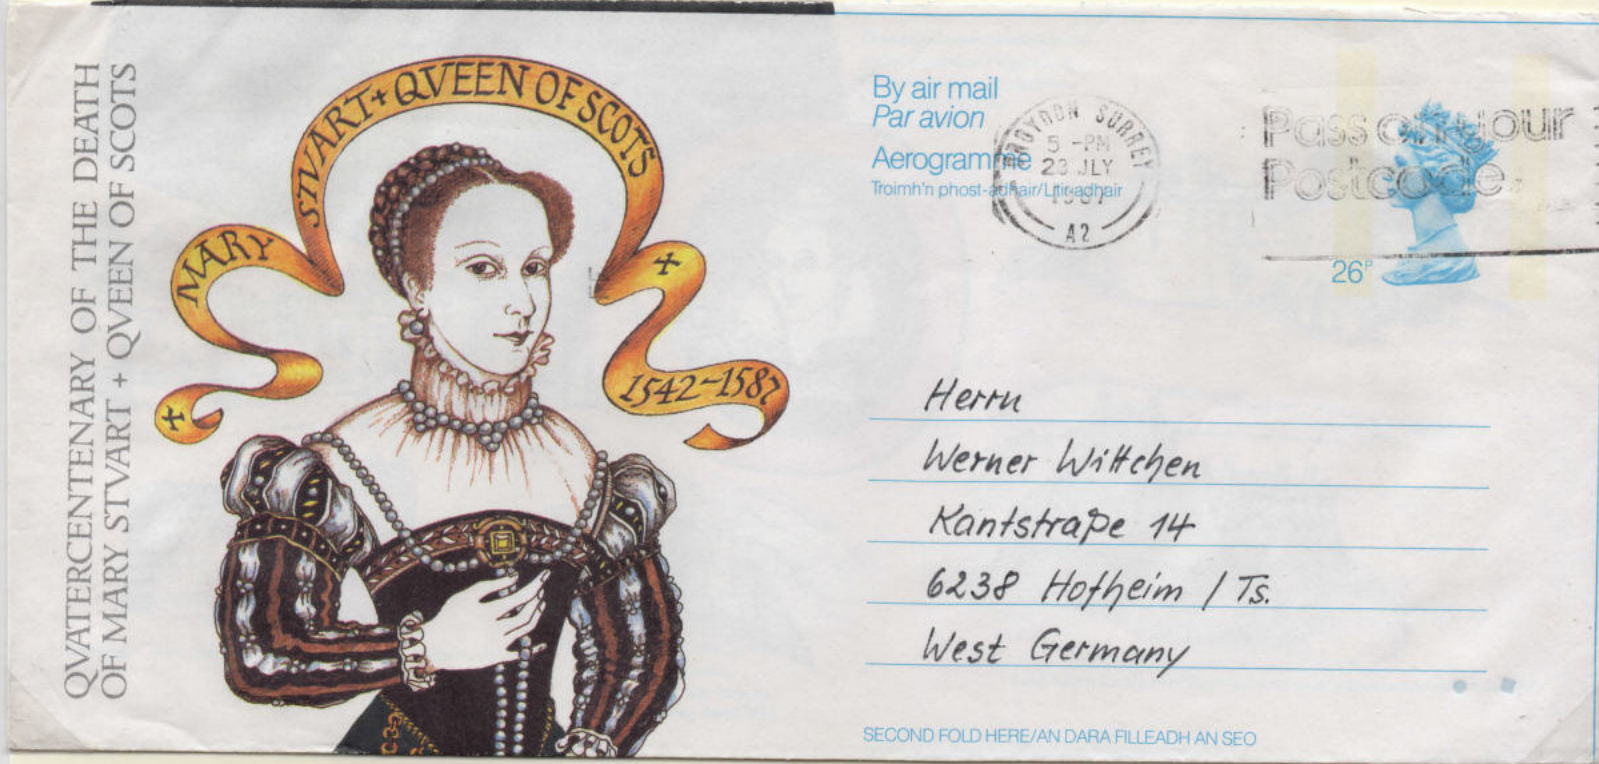 QVATERCENTENARY OF THE DEATH
OF MARY STVART + QVEEN OF SCOTS
MARY STVART + QVEEN OF SCOTS
1542–1587
By air mail
Par avion
Aerogramme
Troimh'n phost-adhair/Litir-adhair
CROYDON SURREY
5 -PM
23 JLY
1987
A2
Pass on your
Postcode
26P
Herrn
Werner Wittchen
Kantstraße 14
6238 Hofheim / Ts.
West Germany
SECOND FOLD HERE/AN DARA FILLEADH AN SEO